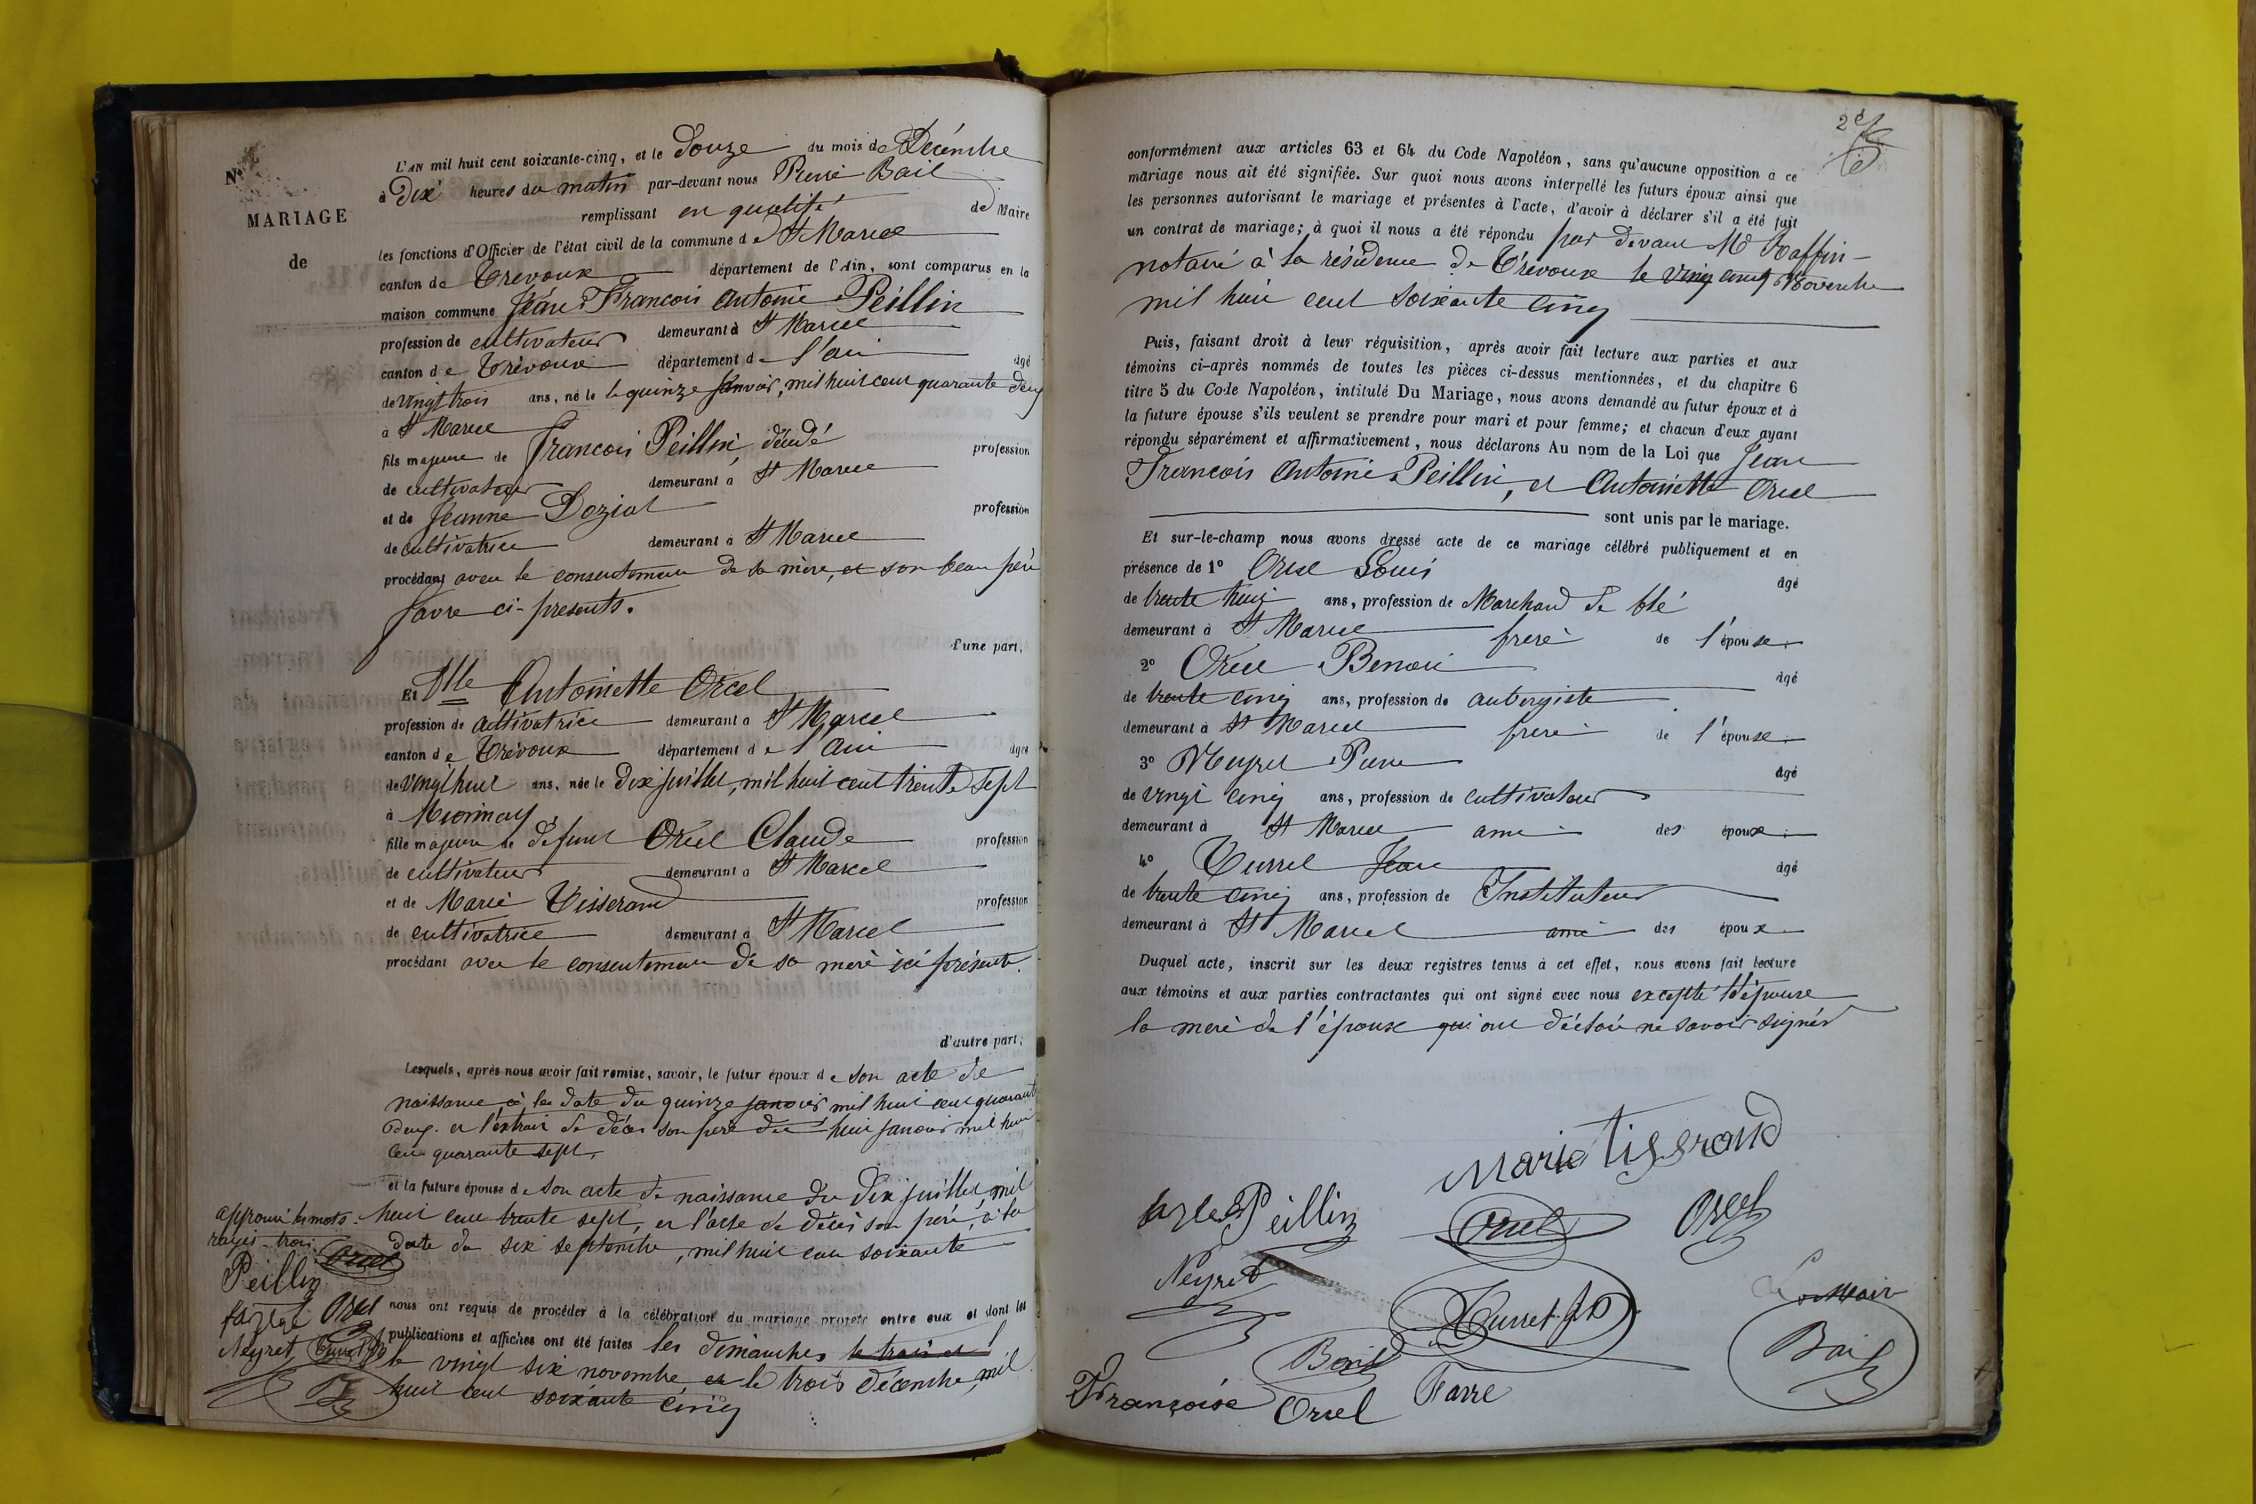 N°
MARIAGE
de
L'AN mil huit cent soixante-cinq, et le Douze du mois de Décembre
à Dix heures du matin par-devant nous Pierre Bail
remplissant en qualité de Maire
les fonctions d'Officier de l'état civil de la commune de St Marcel
canton de Trévoux département de l'Ain, sont comparus en la
maison commune Jean François Antoine Peillin
profession de cultivateur demeurant à St Marcel
canton de Trévoux département de l'ain âgé
de vingt trois ans, né le le quinze Janvier, mil huit cent quarante deux
à St Marcel
fils majeur de François Peillin, décédé profession
de cultivateur demeurant à St Marcel
et de Jeanne Doziat profession
de cultivatrice demeurant à St Marcel
procédant avec le consentement de sa mère, et son beau père
favre ci-présents.
d'une part,
Et Mlle Antoinette Orcel
profession de cultivatrice demeurant à St Marcel
canton de Trévoux département de l'Ain âgée
de vingt huit ans, née le dix juillet, mil huit cent trente sept
à Mionnay
fille majeure de défunt Orcel Claude profession
de cultivateur demeurant à St Marcel
et de Marie Tisserand profession
de cultivatrice demeurant à St Marcel
procédant avec le consentement de sa mère ici présente.
d'autre part,
Lesquels, après nous avoir fait remise, savoir, le futur époux de son acte de
naissance à la date du quinze janvier mil huit cent quarante
deux. et l'extrait de décès son père du huit janvier mil huit
cent quarante sept.
et la future épouse de son acte de naissance du dix juillet, mil
huit cent trente sept, et l'acte de décès son père, à la
date du six septembre, mil huit cent soixante
approuvé les mots
rayés trois
Orcel
Peillin
Orcel
Neyret
nous ont requis de procéder à la célébration du mariage projeté entre eux et dont les
publications et affiches ont été faites les dimanches le trois et l
le vingt six novembre et le trois décembre, mil
huit cent soixante cinq
2e
conformément aux articles 63 et 64 du Code Napoléon, sans qu'aucune opposition a ce
mariage nous ait été signifiée. Sur quoi nous avons interpellé les futurs époux ainsi que
les personnes autorisant le mariage et présentes à l'acte, d'avoir à déclarer s'il a été fait
un contrat de mariage; à quoi il nous a été répondu par devant Me Raffin
notaire à la résidence de Trévoux le vingt cinq Novembre
mil huit cent soixante cinq
Puis, faisant droit à leur réquisition, après avoir fait lecture aux parties et aux
témoins ci-après nommés de toutes les pièces ci-dessus mentionnées, et du chapitre 6
titre 5 du Code Napoléon, intitulé Du Mariage, nous avons demandé au futur époux et à
la future épouse s'ils veulent se prendre pour mari et pour femme; et chacun d'eux ayant
répondu séparément et affirmativement, nous déclarons Au nom de la Loi que Jean
François Antoine Peillin, et Antoinette Orcel
sont unis par le mariage.
Et sur-le-champ nous avons dressé acte de ce mariage célébré publiquement et en
présence de 1° Orcel Louis âgé
de trente huit ans, profession de Marchand de blé
demeurant à St Marcel frère de l'épouse.
2° Orcel Benoit âgé
de trente cinq ans, profession de aubergiste
demeurant à St Marcel frère de l'épouse.
3° Neyret Pierre âgé
de vingt cinq ans, profession de cultivateur
demeurant à St Marcel ami des époux.
4° Turrel Jean âgé
de trente cinq ans, profession de Instituteur
demeurant à St Marcel ami des époux
Duquel acte, inscrit sur les deux registres tenus à cet effet, nous avons fait lecture
aux témoins et aux parties contractantes qui ont signé avec nous excepté l'épouse
la mère de l'époux qui ont déclaré ne savoir signer
Marie Tisserand
Peillin Orcel Orcel
Neyret Turrel Le Maire
Benoit Bail
Françoise Orcel Favre